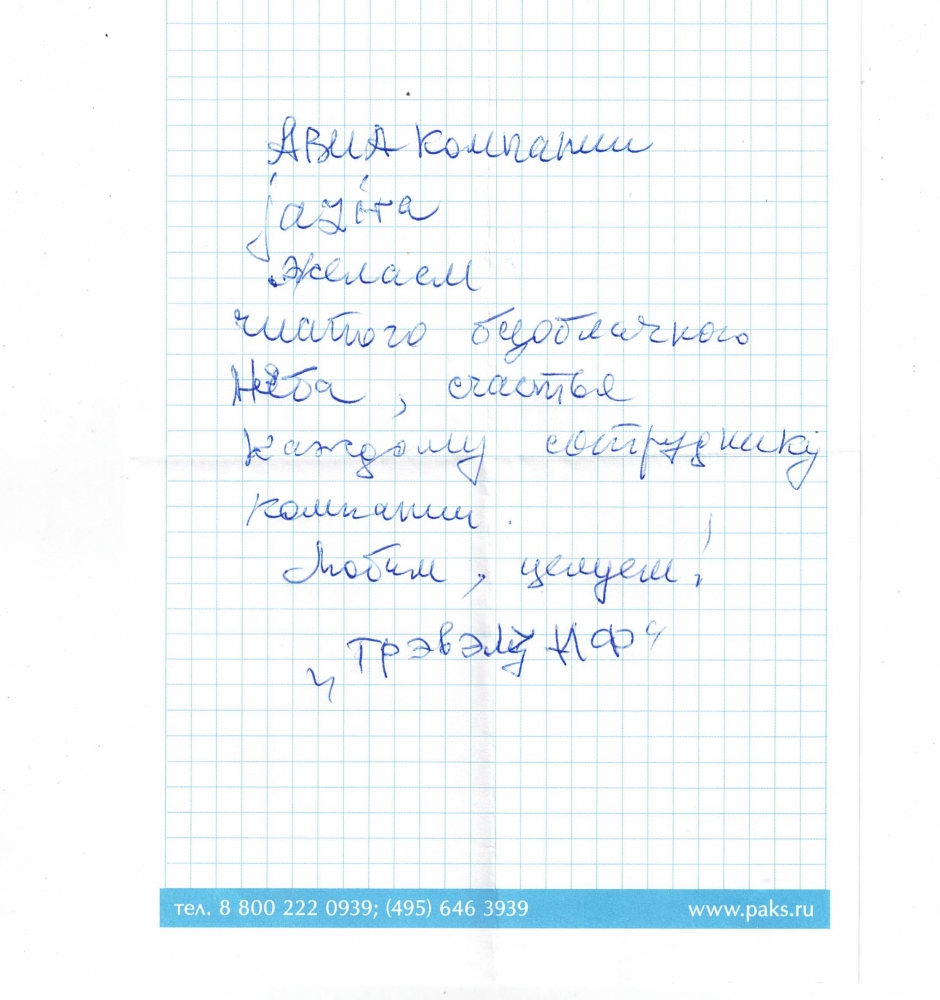 АВИАкомпании
jazira
желаем
чистого безоблачного
Неба, счастья
каждому сотруднику
компании.
Любим, целуем!
"ТРЭВЭЛ
тел. 8 800 222 0939; (495) 646 3939 www.paks.ru